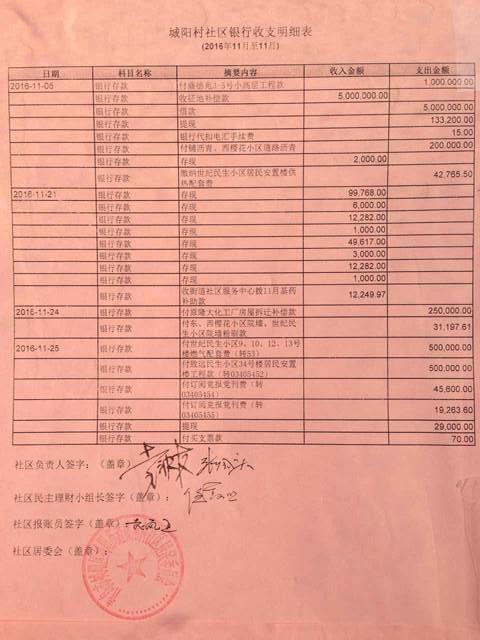 城阳村社区银行收支明细表
(2016年11月至11月)
日期 科目名称 摘要内容 收入金额 支出金额
2016-11-05 银行存款 5号小高层工程款 1,000,000.00
银行存款 收征地补偿款 5,000,000.00
银行存款 借款 5,000,000.00
银行存款 提现 133,200.00
银行存款 银行代扣电汇手续费 15.00
银行存款 付铺沥青、西樱花小区道路沥青 200,000.00
银行存款 存现 2,000.00
银行存款 缴纳世纪民生小区居民安置楼供
热配套费 42,765.50
2016-11-21 银行存款 存现 99,768.00
银行存款 存现 6,000.00
银行存款 存现 12,282.00
银行存款 存现 1,000.00
银行存款 存现 49,617.00
银行存款 存现 3,000.00
银行存款 存现 12,282.00
银行存款 存现 1,000.00
银行存款 收街道社区服务中心拨11月基药
补助款 12,249.97
2016-11-24 银行存款 付原隆大化工厂房屋拆迁补偿款 250,000.00
银行存款 付东、西樱花小区院墙、世纪民
生小区院墙粉刷款 31,197.61
2016-11-25 银行存款 付世纪民生小区9、10、12、13号
楼燃气配套费（转53） 500,000.00
银行存款 付致远民生小区34号楼居民安置
楼工程款（转03405452） 500,000.00
银行存款 付订阅党报党刊费（转
03405454） 45,600.00
银行存款 付订阅党报党刊费（转
03405455） 19,263.60
银行存款 提现 29,000.00
银行存款 付买支票款 70.00
社区负责人签字：（盖章）
社区民主理财小组长签字（盖章）：
社区报账员签字（盖章）
社区居委会（盖章）：